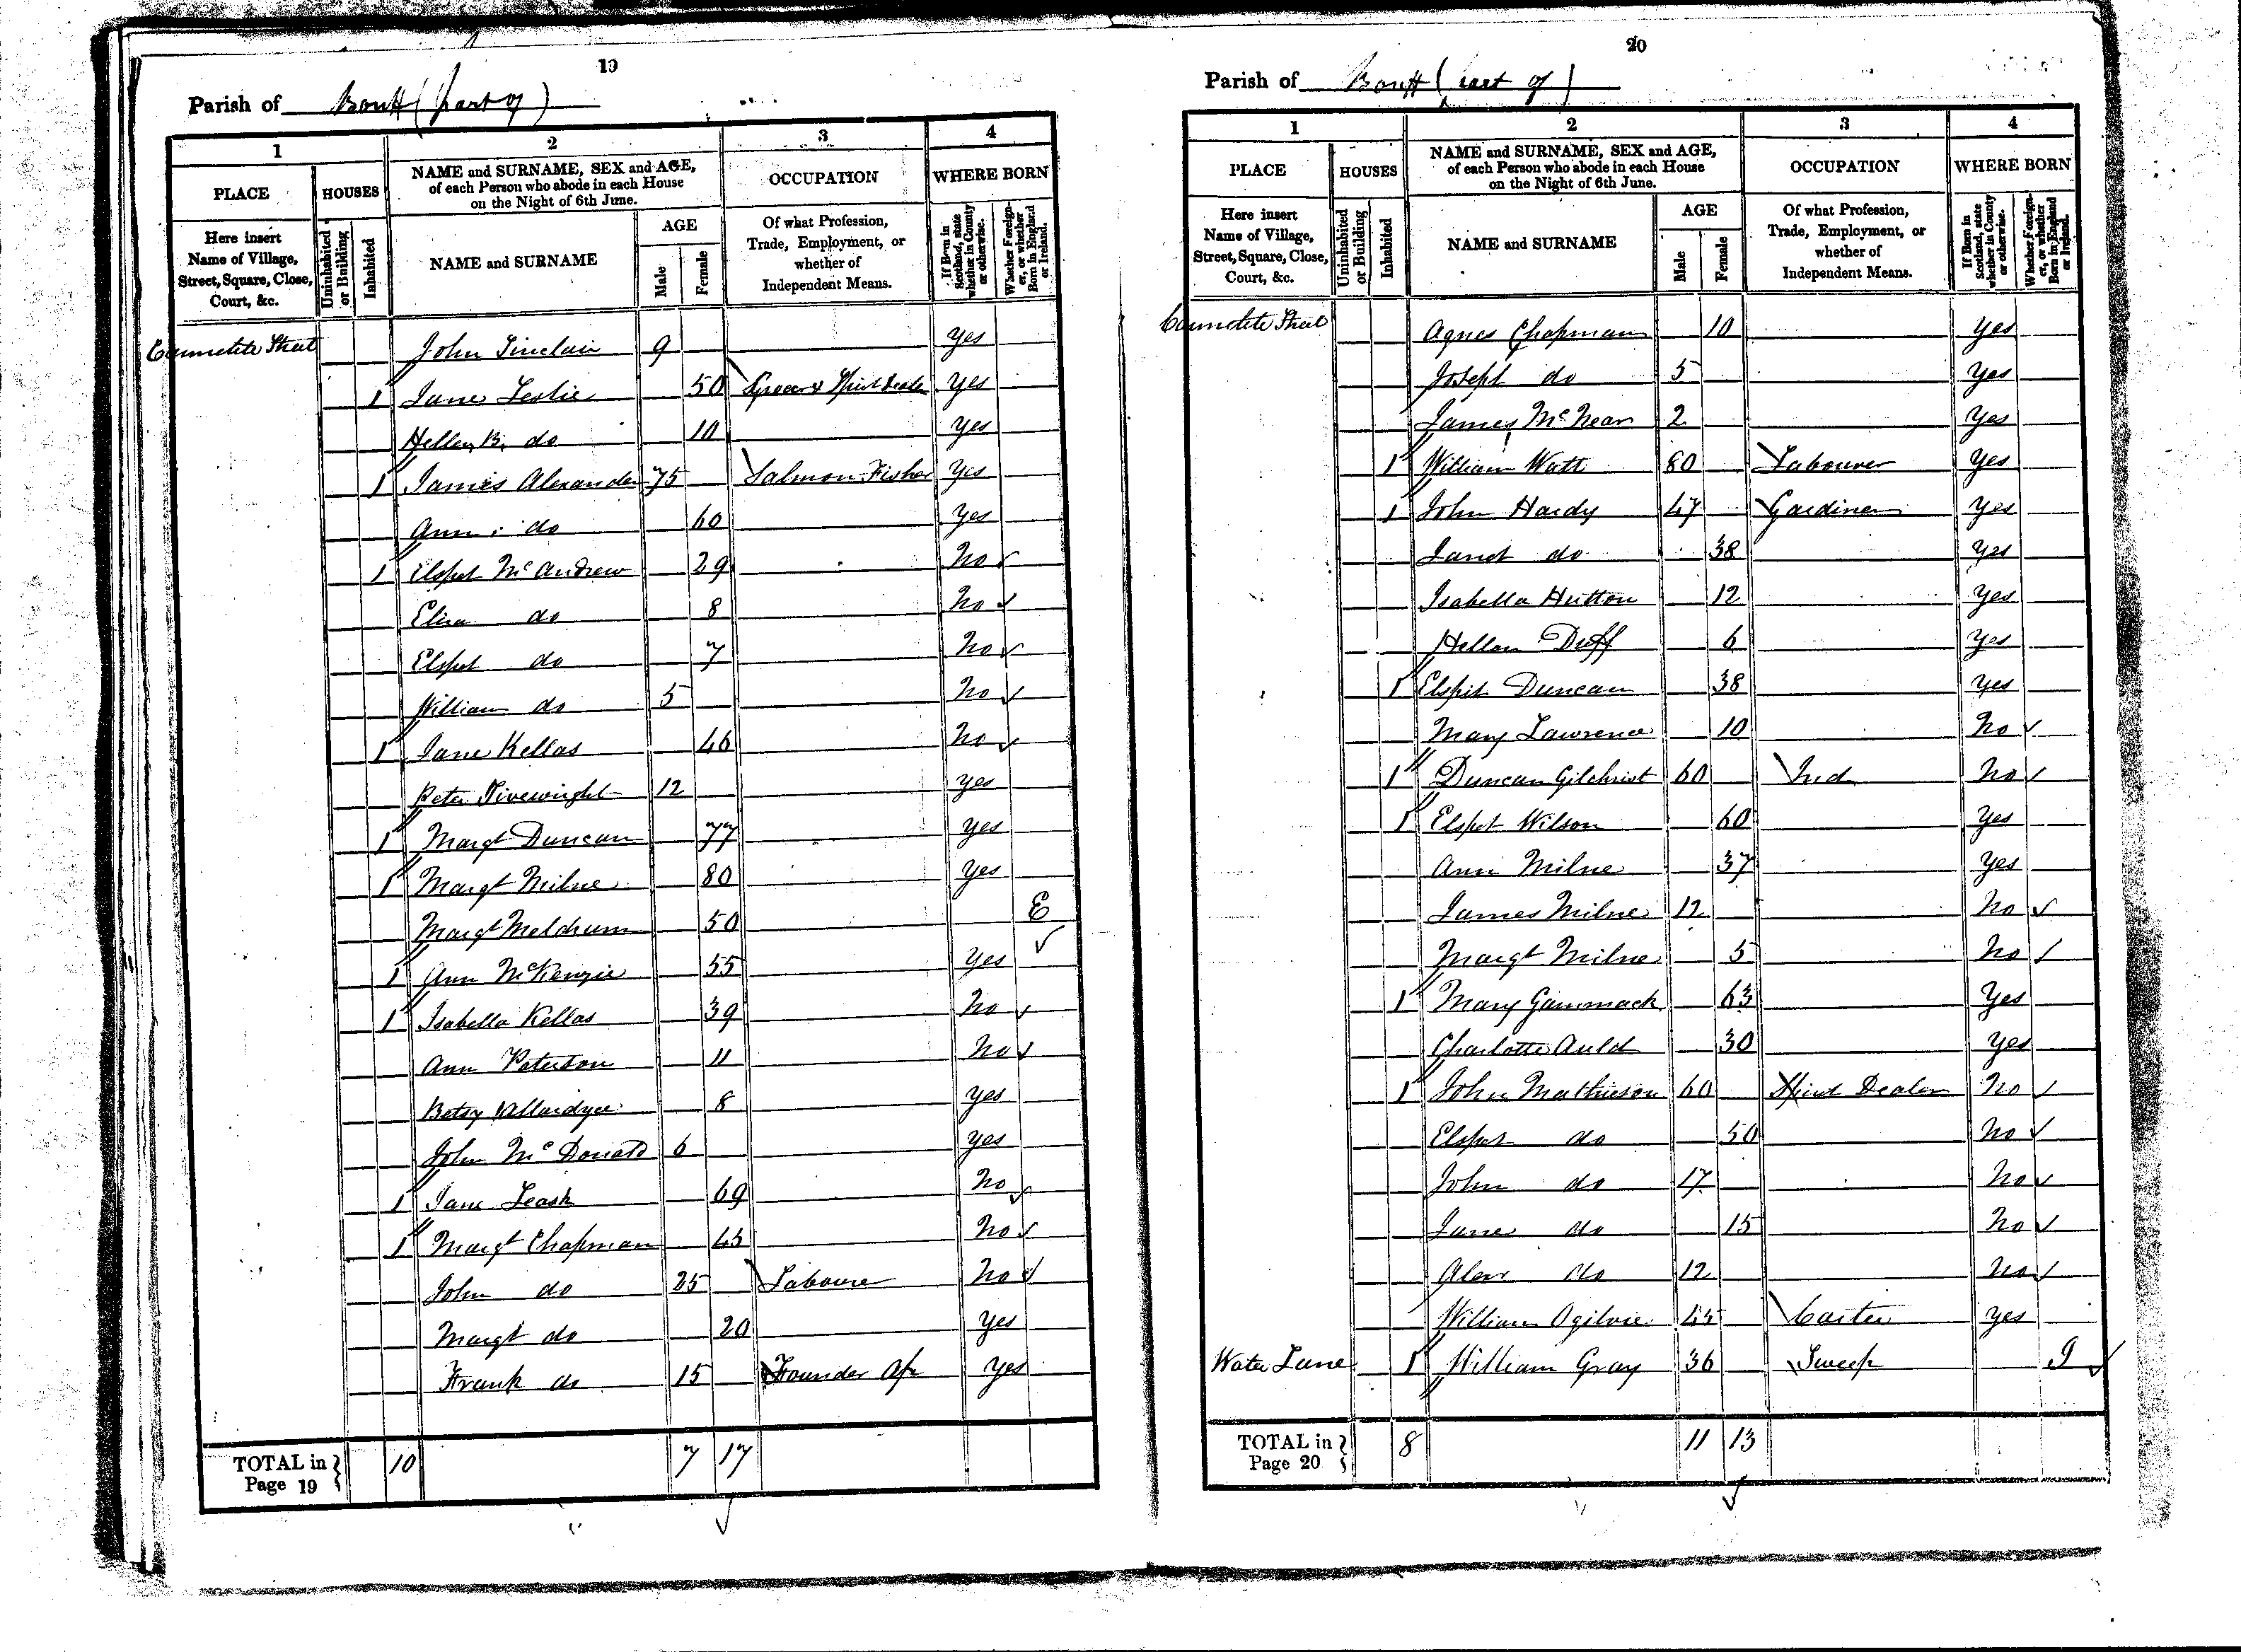 19
Parish of Banff (part of)
1
2
3
4
PLACE
HOUSES
NAME and SURNAME, SEX and AGE,
of each Person who abode in each House
on the Night of 6th June.
OCCUPATION
WHERE BORN
Here insert
Name of Village,
Street, Square, Close,
Court, &c.
Uninhabited
or Building
Inhabited
NAME and SURNAME
AGE
Male
Female
Of what Profession,
Trade, Employment, or
whether of
Independent Means.
If Born in
Scotland, state
whether in County
or otherwise.
Whether Foreign-
er, or whether
Born in England
or Ireland.
Street John Sinclair 9 Yes
1 Jane Leslie 50 Grocer & Spirit Dealer Yes
Hellen B. do 10 Yes
1 James Alexander 75 Salmon Fisher Yes
Ann do 60 Yes
1 Elspet McAndrew 29 No
Eliza do 8 No
Elspet do 7 No
William do 5 No
1 Jane Kellas 46 No
Peter Sivewright 12 Yes
1 Margt Duncan 77 Yes
1 Margt Milne 80 Yes
Margt Meldrum 50 E
1 Ann McKenzie 55 Yes
1 Isabella Kellas 39 No
Ann Paterson 11 No
Betsy Allardyce 8 Yes
John McDonald 6 Yes
1 Jane Leask 69 No
1 Margt Chapman 45 No
John do 25 Laboure No
Margt do 20 Yes
Frank do 15 Founder Ap Yes
TOTAL in
Page 19
10 7 17
20
Parish of Banff (part of)
1
2
3
4
PLACE
HOUSES
NAME and SURNAME, SEX and AGE,
of each Person who abode in each House
on the Night of 6th June.
OCCUPATION
WHERE BORN
Here insert
Name of Village,
Street, Square, Close,
Court, &c.
Uninhabited
or Building
Inhabited
NAME and SURNAME
AGE
Male
Female
Of what Profession,
Trade, Employment, or
whether of
Independent Means.
If Born in
Scotland, state
whether in County
or otherwise.
Whether Foreign-
er, or whether
Born in England
or Ireland.
Street Agnes Chapman 10 Yes
Joseph do 5 Yes
James 2 Yes
1 William Watt 80 Labourer Yes
1 John Hardy 47 Gardiner Yes
Janet do 38 Yes
Isabella Hutton 12 Yes
Hellen Duff 6 Yes
1 Elspit Duncan 38 Yes
Mary Lawrence 10 No
1 Duncan Gilchrist 60 Ind No
1 Elspet Wilson 60 Yes
Ann Milne 37 Yes
James Milne 12 No
Margt Milne 5 No
1 Mary Gammack 63 Yes
Charlotte Auld 30 Yes
1 John Mathieson 60 Spirit Dealer No
Elspet do 50 No
John do 17 No
Jane do 15 No
Alexr do 12 No
William Ogilvie 45 Carter Yes
Water Lane 1 William Gray 36 Sweep I
TOTAL in
Page 20
8 11 13